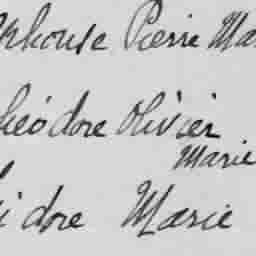 phonse Pierre Ma
héodore Olivier
Marie
idore Marie